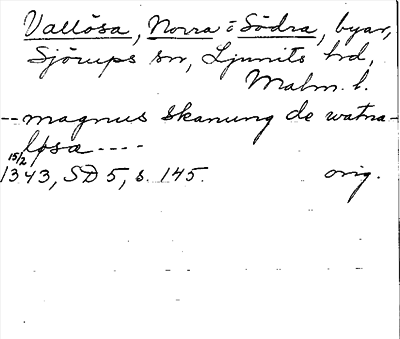 Vallösa, Norra o Södra, byar,
Sjörups sn, Ljunits hd,
Malm. l.
-- magnus skanung de watna-
løsa ----
15/2
1343, SD 5, s. 145. orig.